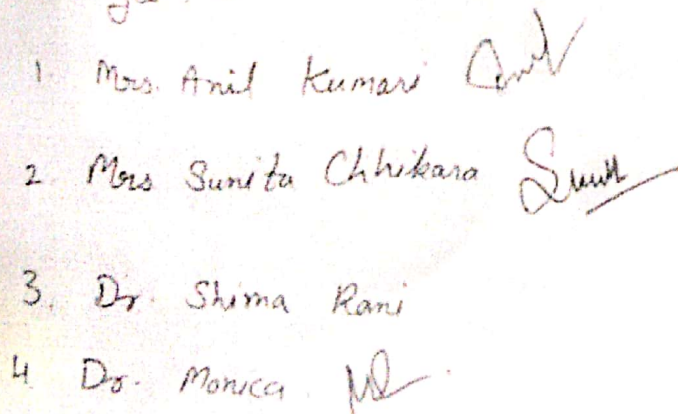 1. Mrs. Anil Kumari
2. Mrs Sunita Chhikara
3. Dr. Shima Rani
4 Dr. Monica